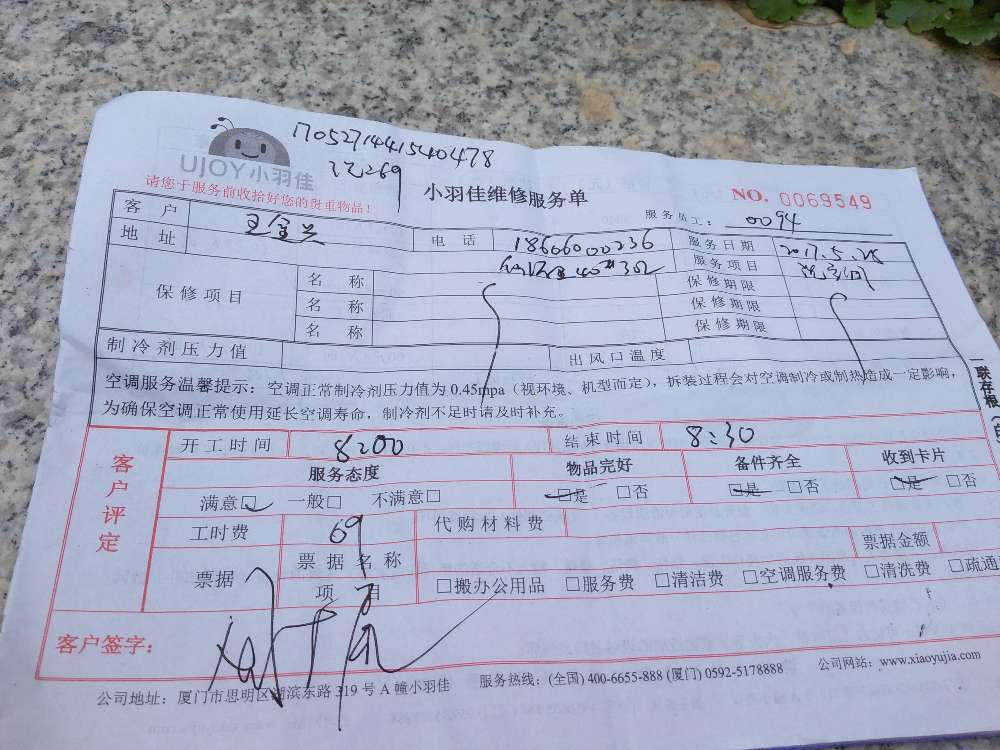 170527144154 0478
UJOY小羽佳
请您于服务前收拾好您的贵重物品!
小羽佳维修服务单
NO. 0069549
服务员工: 0094
客 户 电 话 18606000236 服务日期 2017.5.28
地 址 服务项目
保修项目 名 称 保修期限
名 称 保修期限
名 称 保修期限
制冷剂压力值 出风口温度
空调服务温馨提示:空调正常制冷剂压力值为 0.45mpa(视环境、机型而定),拆装过程会对空调制冷或制热造成一定影响,
为确保空调正常使用延长空调寿命,制冷剂不足时请及时补充。
一联存根
客户评定
开工时间 8:00 结束时间 8:30
服务态度 物品完好 备件齐全 收到卡片
满意□ 一般□ 不满意□ □是 □否 □是 □否 □是 □否
工时费 69 代购材料费
票据 票据名称 票据金额
项 目 □搬办公用品 □服务费 □清洁费 □空调服务费 □清洗费 □疏通
客户签字:
公司地址:厦门市思明区湖滨东路 319 号 A 幢小羽佳 服务热线:(全国) 400-6655-888 (厦门) 0592-5178888 公司网站:www.xiaoyujia.com